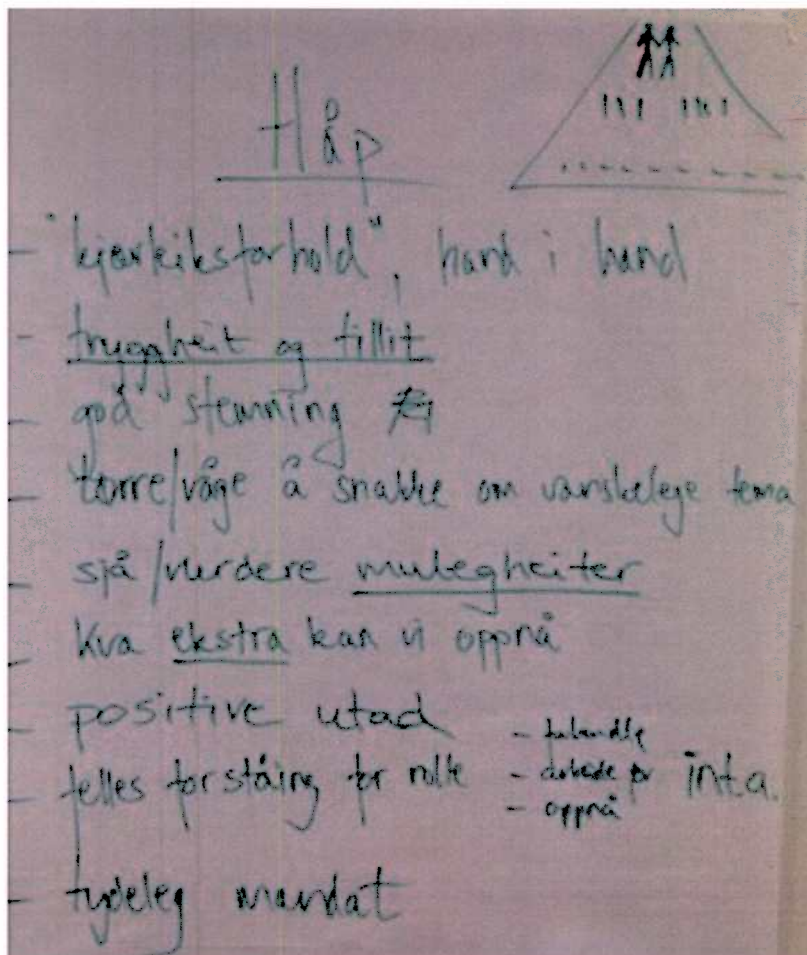 Håp
- "kjærleiksforhold", hand i hand
- tryggheit og tillit
- god stemning
- tørre/våge å snakke om vanskelege tema
- sjå/vurdere mulegheiter
- kva ekstra kan vi oppnå
- positive utad
- felles forståing for rolle
- arbeide for
- oppnå
- tydeleg mandat